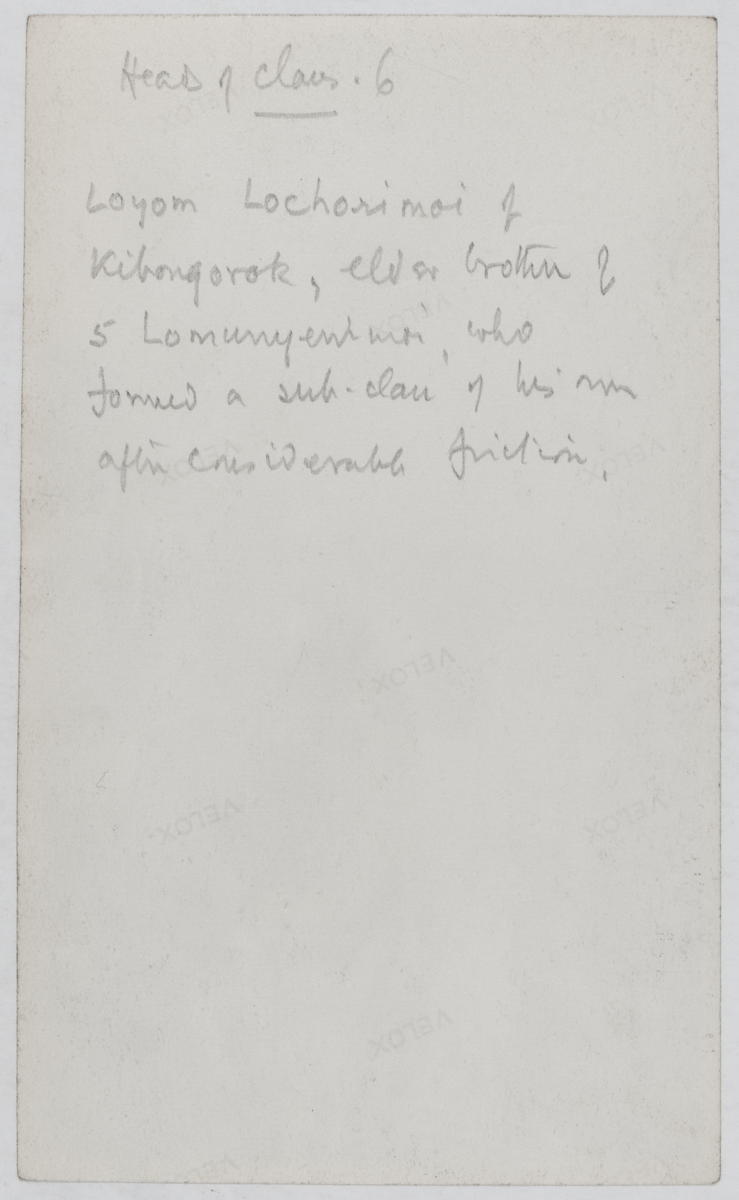 Head of clans. 6
Loyom Lochorimoi of
Kibongorok, elder brother of
5 Lomunyenimoi, who
formed a sub-clan of his own
after considerable friction.
VELOX
VELOX
VELOX
VELOX
VELOX
VELOX